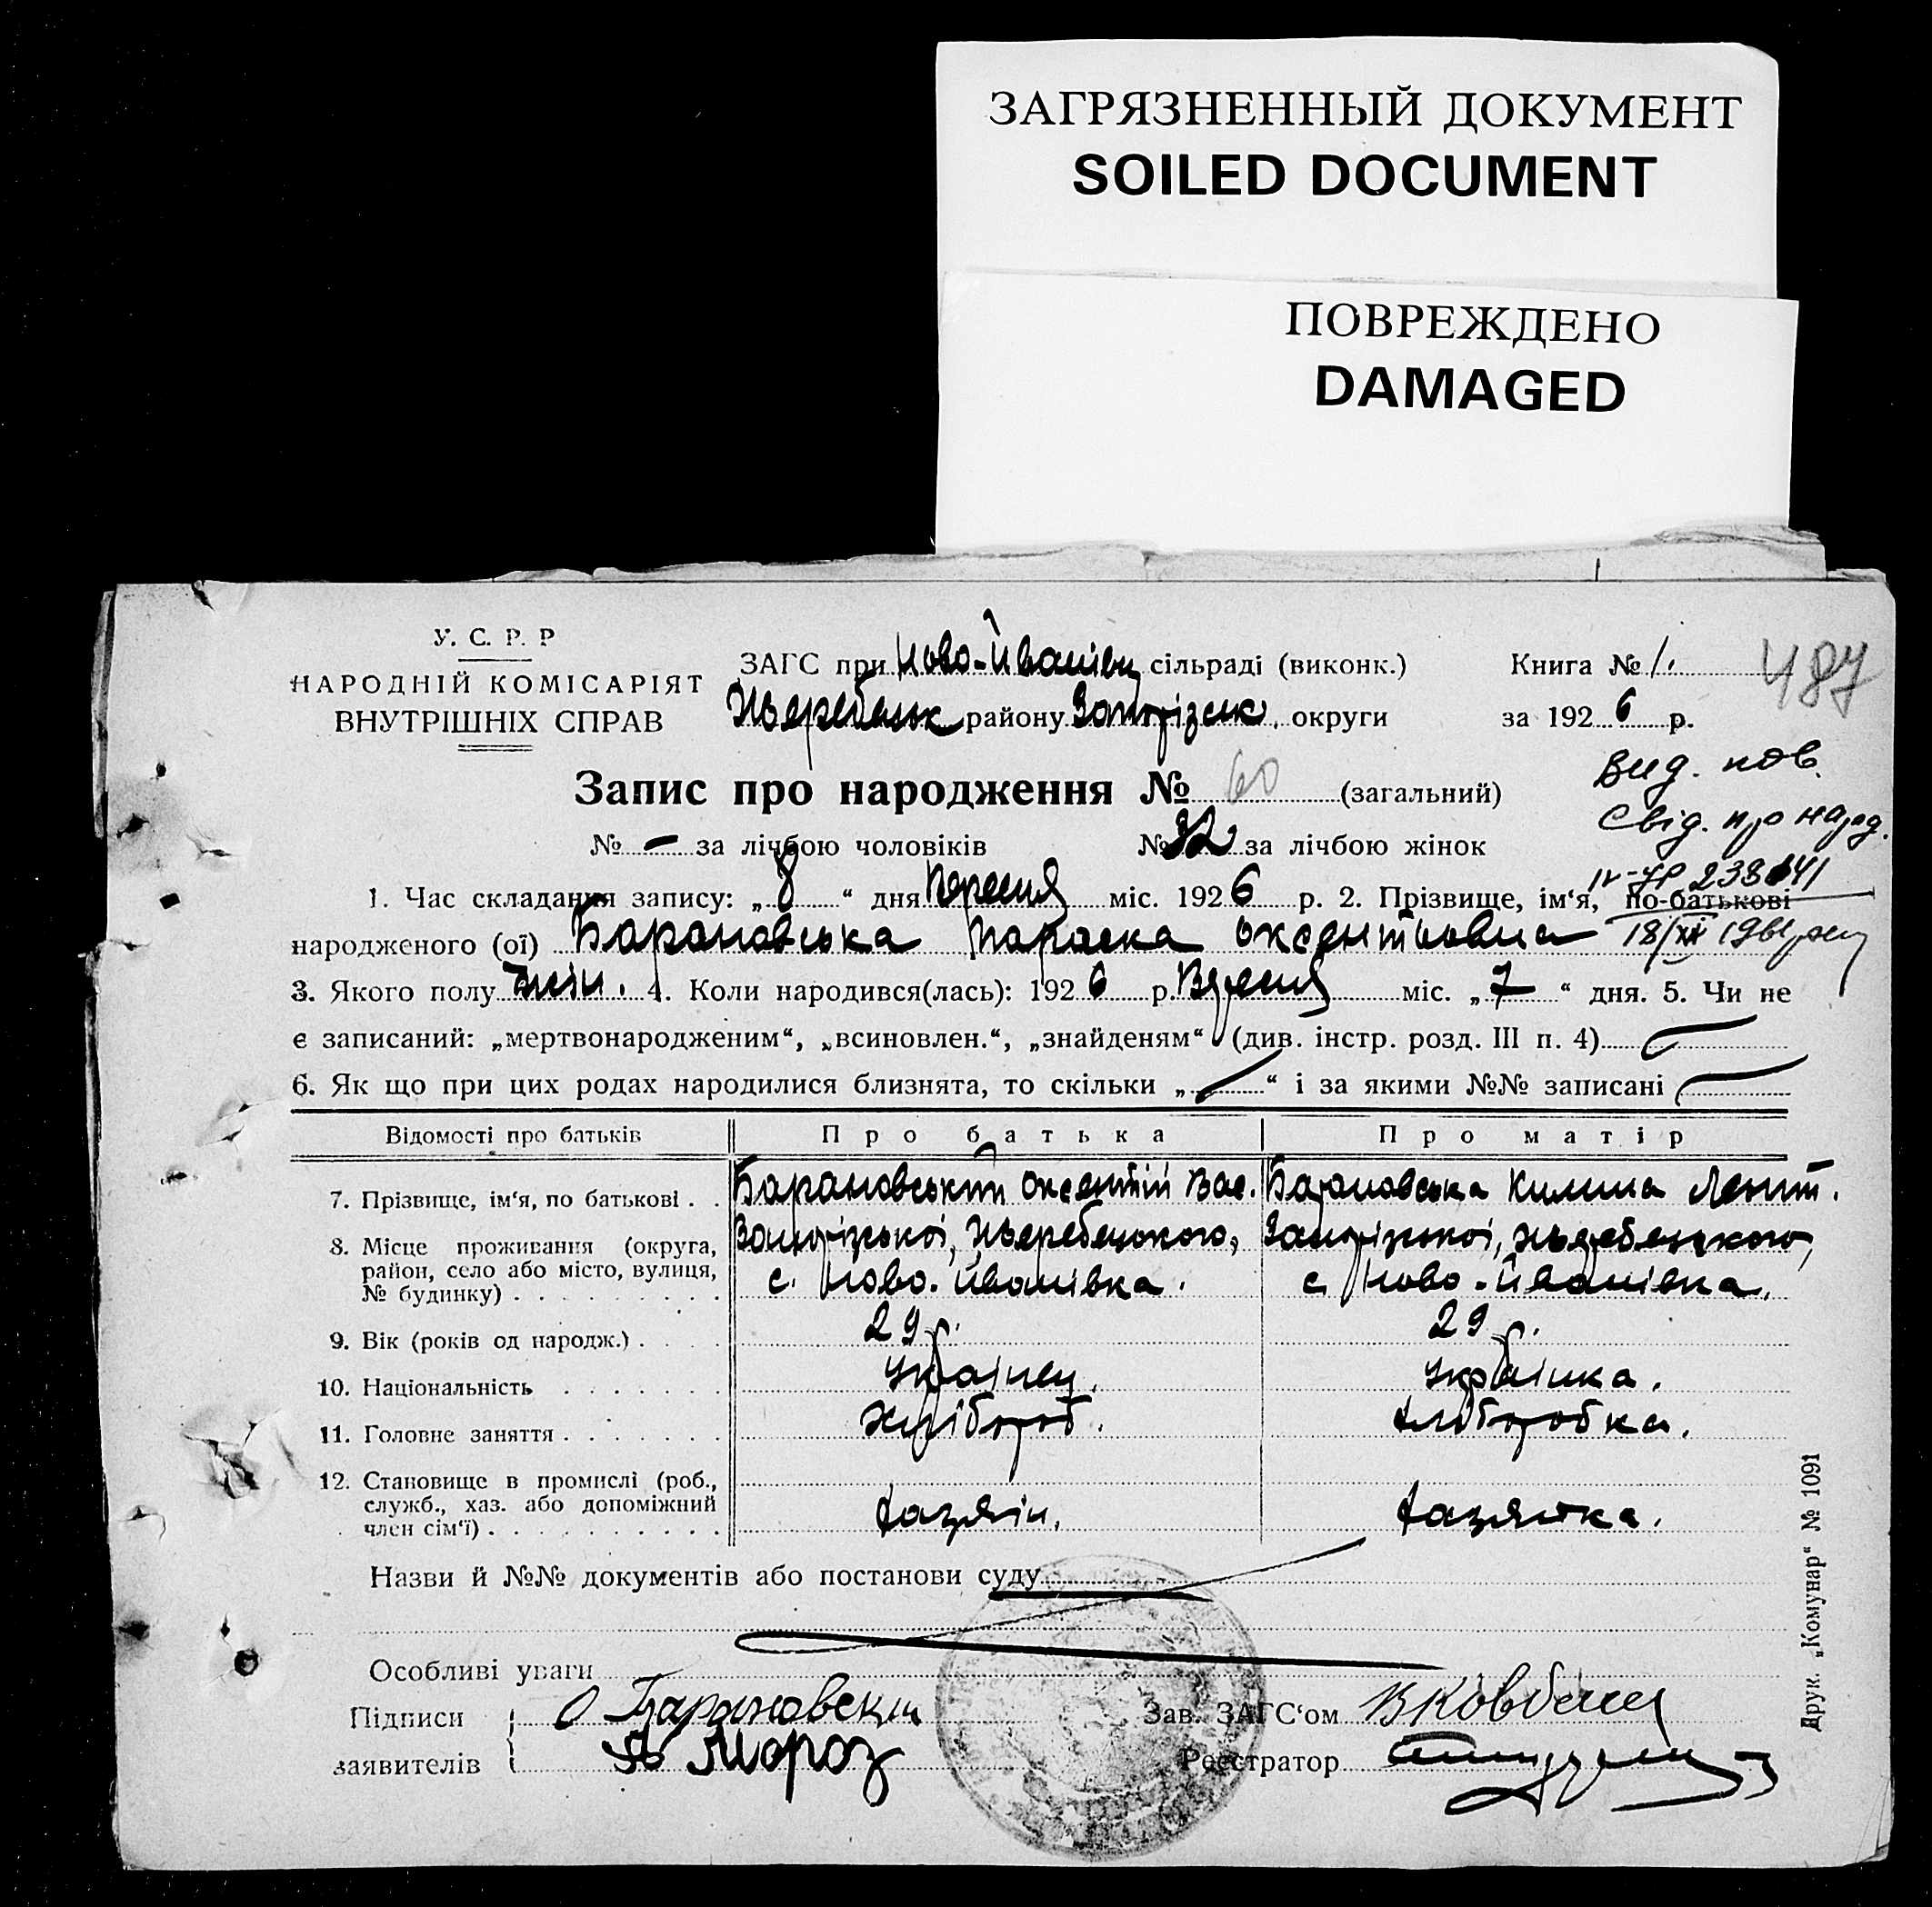 ЗАГРЯЗНЕННЫЙ ДОКУМЕНТ
SOILED DOCUMENT
ПОВРЕЖДЕНО
DAMAGED
У. С. Р. Р
НАРОДНІЙ КОМІСАРІЯТ
ВНУТРІШНІХ СПРАВ
ЗАГС при Ново-Йванівц сільраді (виконк.)
Жеребецьк району Запорізськ. округи
Книга № 1.
за 1926 р.
487
Запис про народження № 60 (загальний)
№ – за лічбою чоловіків № 32 за лічбою жінок
Вид. пов.
Свід. про народ.
IV-УР 238641
18/XII 1961
1. Час складання запису: „8“ дня Вересня міс. 1926 р. 2. Прізвище, ім‘я, по-батькові
народженого (ої) Барановська Параска Оксентьовна
3. Якого полу жін. 4. Коли народився(лась): 1926 р. Вересня міс. „7“ дня. 5. Чи не
є записаний: „мертвонародженим“, „всиновлен.“, „знайденям“ (див. інстр. розд. III п. 4)
6. Як що при цих родах народилися близнята, то скільки „ “ і за якими №№ записані
Відомості про батьків Про батька Про матір
7. Прізвище, ім‘я, по батькові . . Барановський Оксентій Вас. Барановська Килина Леонт.
8. Місце проживання (округа, район, село або місто, вулиця, № будинку) . . . . . . . . . Запорізської, Жеребецького, с. Ново-Йванівка. Запорізської, Жеребецького, с. Ново-Йванівка.
9. Вік (років од народж.) . . . . 29 р. 29 р.
10. Національність . . . . . . . Українец. Українка.
11. Головне заняття . . . . . . . Хлібороб. Хліборобка.
12. Становище в промислі (роб., служб., хаз. або допоміжний член сім‘ї) . . . . . . . . . . Хазяїн. Хазяйка.
Назви й №№ документів або постанови суду
Особливі уваги
Підписи О Барановский Зав. ЗАГС‘ом
заявителів Мороз Реєстратор
Друк. „Комунар“ № 1091